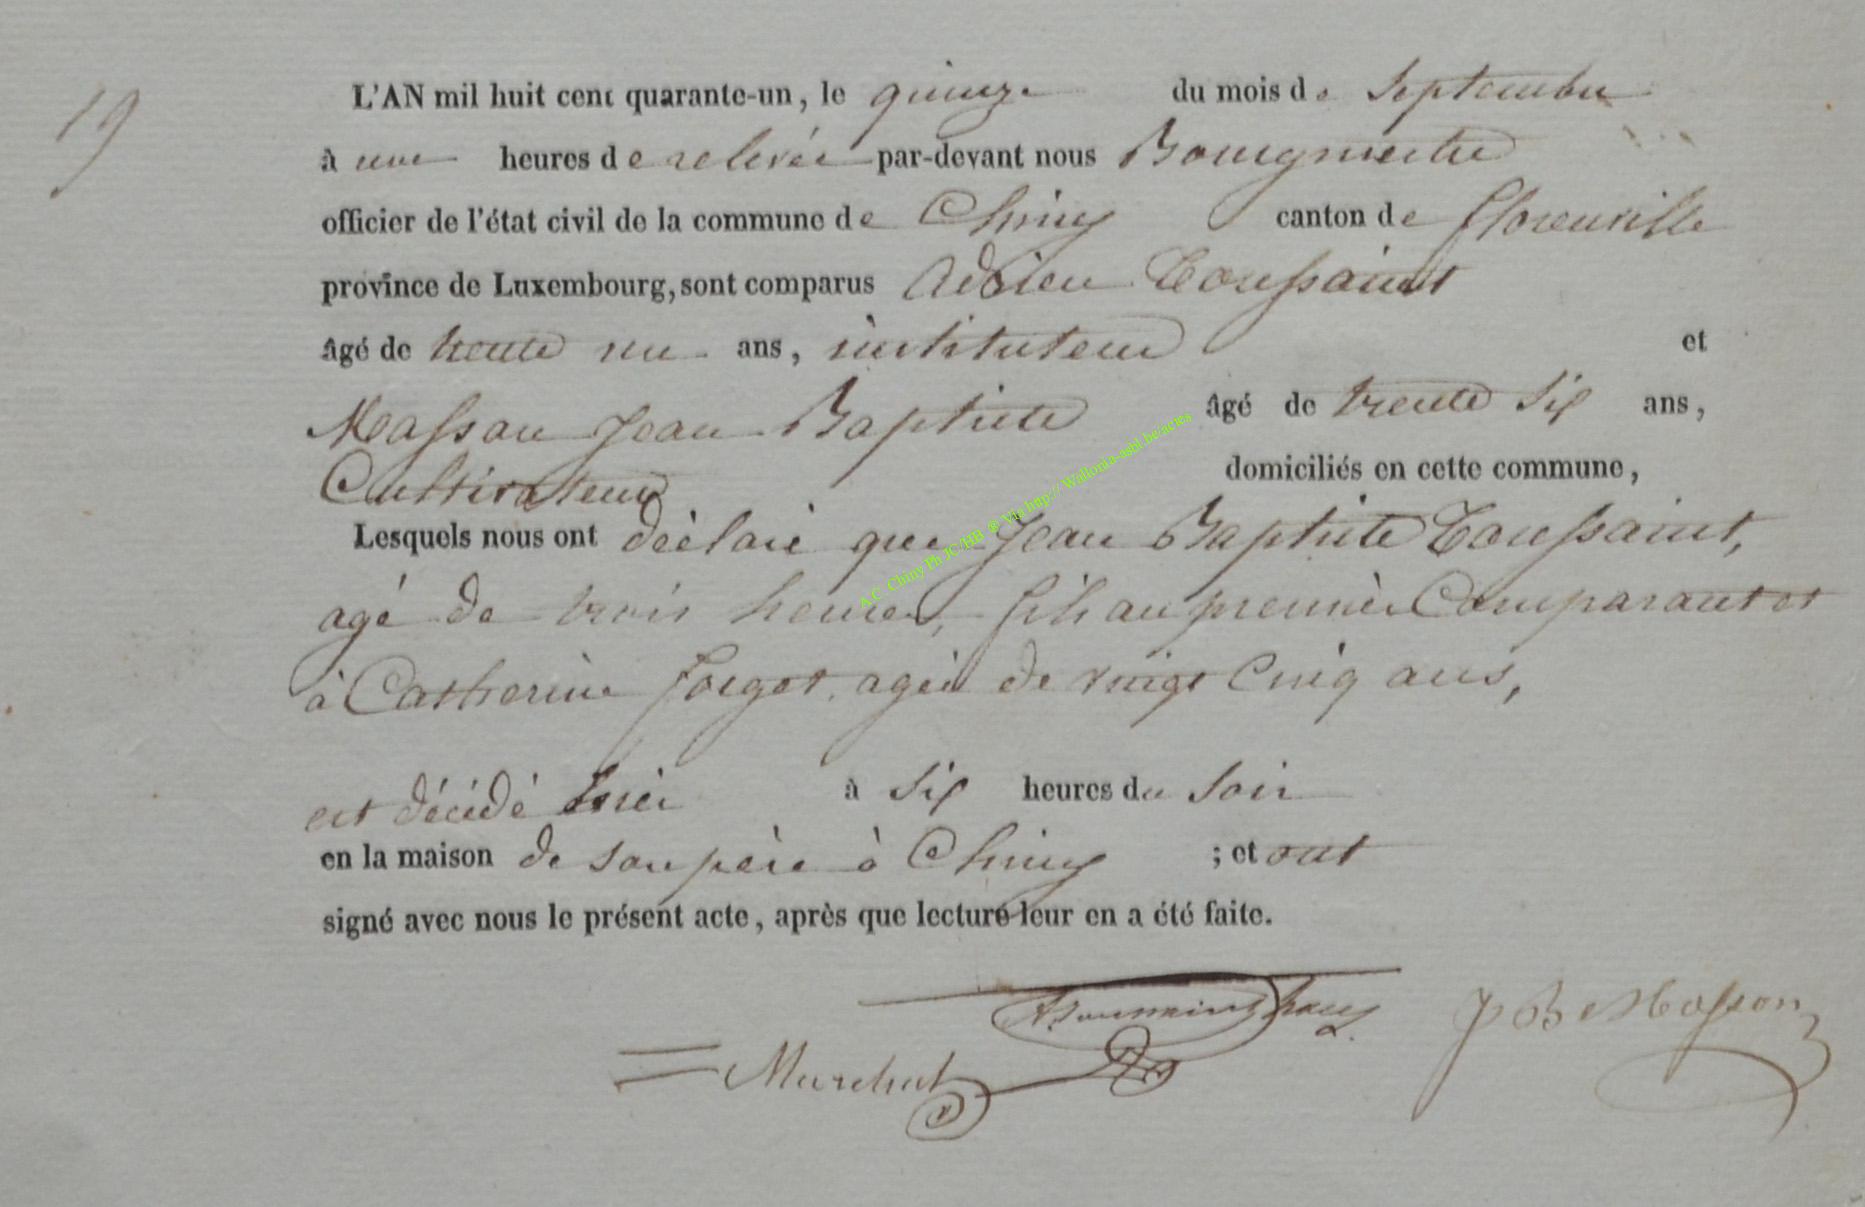 19
L'AN mil huit cent quarante-un, le quinze du mois de Septembre
à une heures de relevée par-devant nous Bourgmestre
officier de l'état civil de la commune de Chiny canton de florenville
province de Luxembourg, sont comparus Adrien Toussaint
âgé de trente un ans, instituteur et
Massau Jean Baptiste âgé de trente Six ans,
Cultivateur domiciliés en cette commune,
Lesquels nous ont déclaré que Jean Baptiste Toussaint,
agé de trois heures, fils au premier Comparant et
à Catherine forget agée de vingt Cinq ans,
est décédé hier à Six heures du Soir
en la maison de son père à Chiny ; et ont
signé avec nous le présent acte, après que lecture leur en a été faite.
J B Masson
Marchot
A C Chiny Ph JC/HB ® Via http:// Wallonia-asbl.be/actes